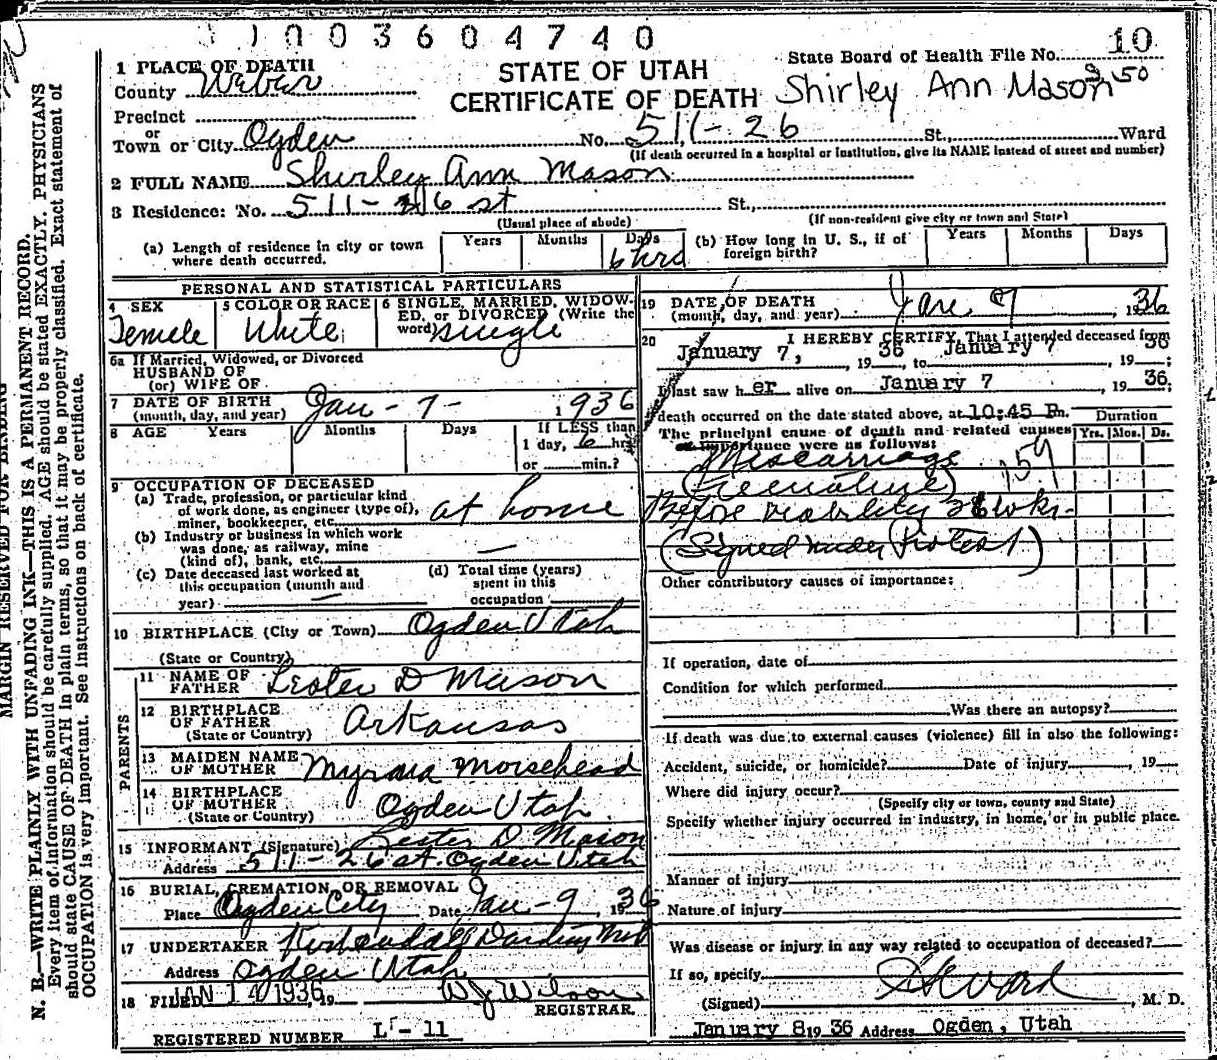 1003604740
State Board of Health File No. 10
STATE OF UTAH
CERTIFICATE OF DEATH
Shirley Ann Mason
1 PLACE OF DEATH
County Weber
Precinct
or
Town or City Ogden No. 511-26 St, Ward
(If death occurred in a hospital or institution, give its NAME instead of street and number)
2 FULL NAME Shirley Ann Mason
3 Residence: No. 511-26 st St.,
(Usual place of abode) (If non-resident give city or town and State)
(a) Length of residence in city or town where death occurred. Years Months Days 6 hrs
(b) How long in U. S., if of foreign birth? Years Months Days
PERSONAL AND STATISTICAL PARTICULARS
4 SEX Female
5 COLOR OR RACE White
6 SINGLE, MARRIED, WIDOWED, or DIVORCED (Write the word) single
6a If Married, Widowed, or Divorced
HUSBAND OF
(or) WIFE OF
7 DATE OF BIRTH
(month, day, and year) Jan - 7 - 1936
8 AGE Years Months Days If LESS than 1 day, 6 hrs
or min.?
9 OCCUPATION OF DECEASED
(a) Trade, profession, or particular kind of work done, as engineer (type of), miner, bookkeeper, etc. at home
(b) Industry or business in which work was done, as railway, mine (kind of), bank, etc. —
(c) Date deceased last worked at this occupation (month and year) —
(d) Total time (years) spent in this occupation
10 BIRTHPLACE (City or Town) Ogden Utah
(State or Country)
PARENTS
11 NAME OF FATHER Lester D Mason
12 BIRTHPLACE OF FATHER
(State or Country) Arkansas
13 MAIDEN NAME OF MOTHER Morsehead
14 BIRTHPLACE OF MOTHER
(State or Country) Ogden Utah
15 INFORMANT (Signature) Lester D. Mason
Address 511-26 st. Ogden Utah
16 BURIAL, CREMATION, OR REMOVAL
Place Ogden City Date Jan-9, 1936
17 UNDERTAKER Kirkendall Darling
Address Ogden Utah
18 FILED JAN 14 1936 19 W J Wilson
REGISTRAR.
REGISTERED NUMBER L-11
19 DATE OF DEATH
(month, day, and year) Jan 7, 1936
20 I HEREBY CERTIFY, That I attended deceased from
January 7, 1936 to January 7 1936;
I last saw her alive on January 7, 1936;
death occurred on the date stated above, at 10:45 P.m.
Duration
The principal cause of death and related causes
of importance were as follows:
Yrs. Mos. Ds.
Miscarriage
(Premature) 159
Before viability 26 wks.
(Signed under Protest)
Other contributory causes of importance:
If operation, date of
Condition for which performed
Was there an autopsy?
If death was due to external causes (violence) fill in also the following:
Accident, suicide, or homicide? Date of injury, 19
Where did injury occur?
(Specify city or town, county and State)
Specify whether injury occurred in industry, in home, or in public place.
Manner of injury
Nature of injury
Was disease or injury in any way related to occupation of deceased?
If so, specify
(Signed) Ward, M. D.
January 8 19 36 Address Ogden, Utah
MARGIN RESERVED FOR BINDING
N. B.—WRITE PLAINLY WITH UNFADING INK—THIS IS A PERMANENT RECORD.
Every item of information should be carefully supplied. AGE should be stated EXACTLY. PHYSICIANS
should state CAUSE OF DEATH in plain terms, so that it may be properly classified. Exact statement of
OCCUPATION is very important. See instructions on back of certificate.